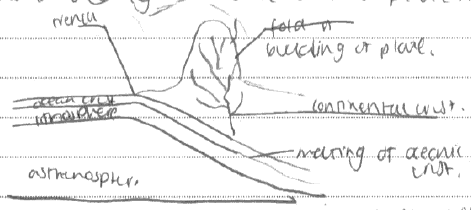 trench
buckling of plate.
oceanic crust
continental crust.
melting of oceanic
crust.
asthenospher.